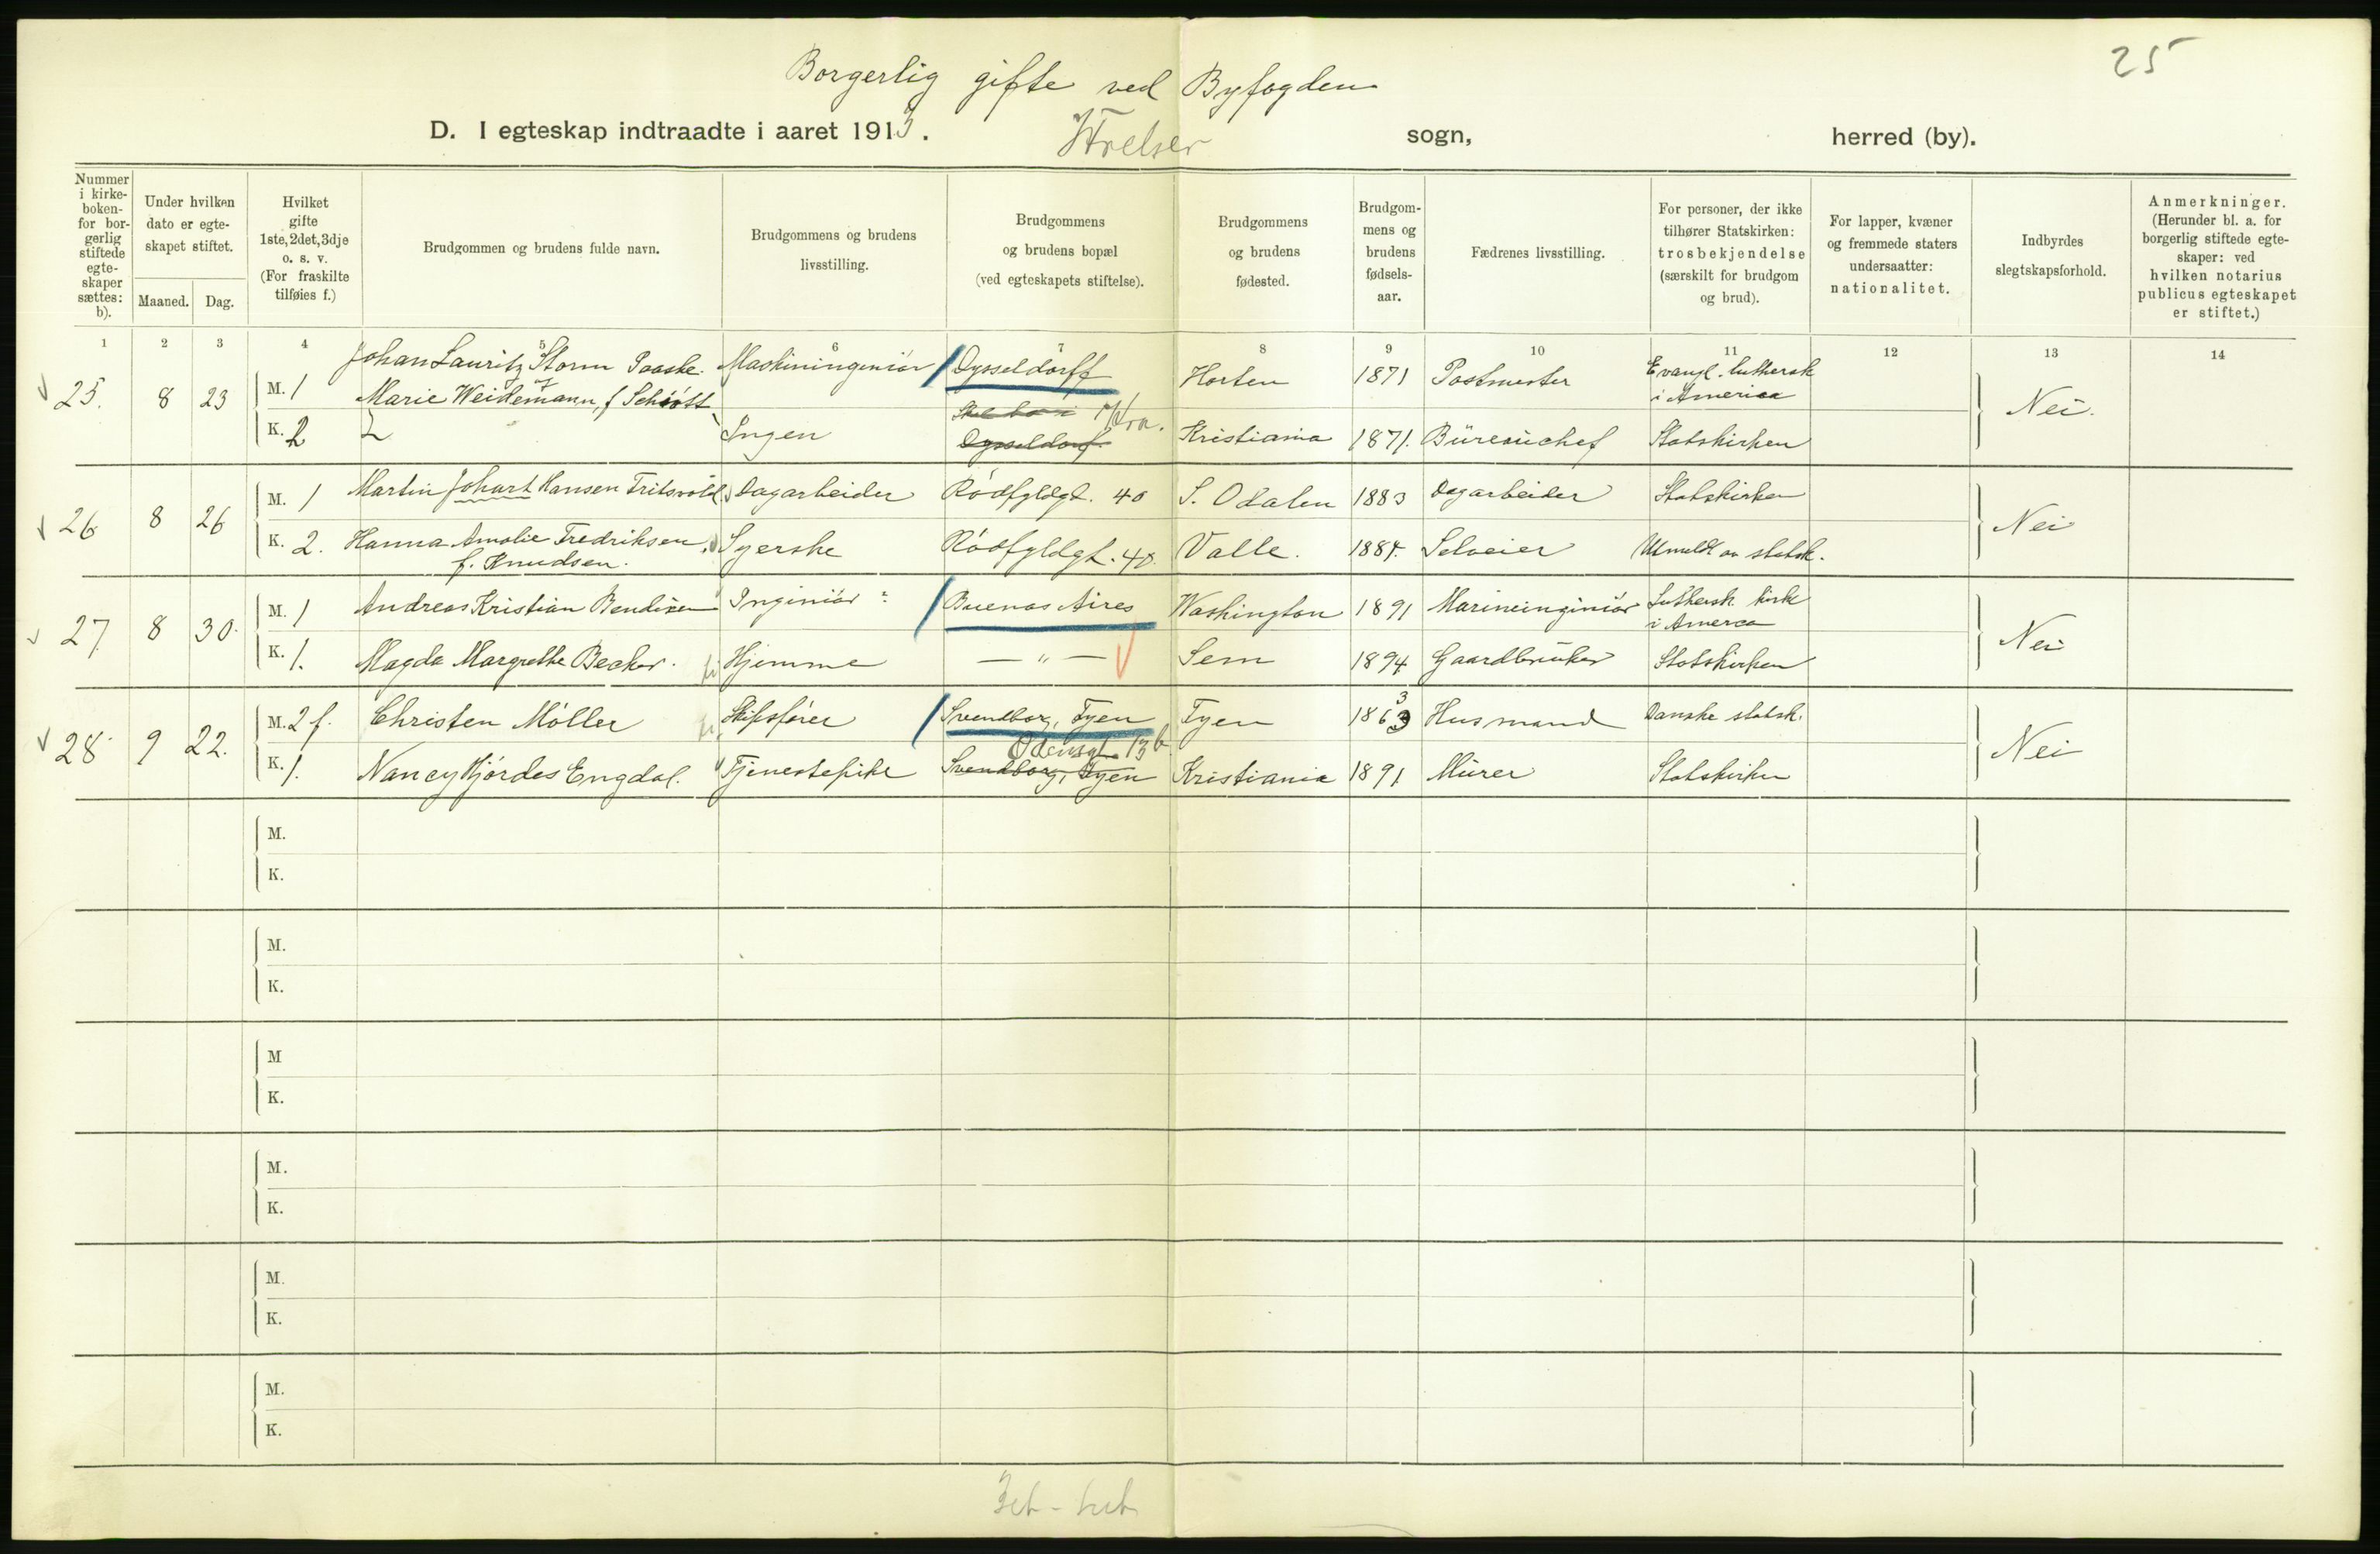 25
Borgerlig gifte ved Byfogden
D. I egteskap indtraadte i aaret 1913. sogn, herred (by).
Nummer i kirke-boken- for bor-gerlig stiftede egte-skaper sættes: b).
Under hvilken dato er egte-skapet stiftet.
Maaned. Dag.
Hvilket gifte 1ste, 2det, 3dje o. s. v. (For fraskilte tilføies f.)
Brudgommen og brudens fulde navn.
Brudgommens og brudens livsstilling.
Brudgommens og brudens bopæl (ved egteskapets stiftelse).
Brudgommens og brudens fødested.
Brudgom-mens og brudens fødsels-aar.
Fædrenes livsstilling.
For personer, der ikke tilhører Statskirken: trosbekjendelse (særskilt for brudgom og brud).
For lapper, kvæner og fremmede staters undersaatter: nationalitet.
Indbyrdes slegtskapsforhold.
Anmerkninger. (Herunder bl. a. for borgerlig stiftede egte-skaper: ved hvilken notarius publicus egteskapet er stiftet.)
1 2 3 4 5 6 7 8 9 10 11 12 13 14
25. 8 23 M. 1 Johan Lauritz Storm Paaske. Maskiningeniör Dysseldorff Horten 1871 Postmester Evangl. luthersk i America Nei.
K. 2 Marie Weidemann, f Schiött Ingen Dysseldorf Kra. Kristiania 1871. Büreauchef Statskirken
26 8 26 M. 1 Martin Johart Hansen Fritsvold Dagarbeider Rödfyldgt. 40 S. Odalen 1883 Dagarbeider Statskirken Nei
K. 2. Hanna Amalie Fredriksen, f. Knudsen. Syerske Rödfyldgt. 40. Valle. 1884. Selveier Utmeldt av statsk.
27 8 30. M. 1 Andreas Kristian Bendixen Inginiör Buenos Aires Washington 1891 Marineinginiör Luthersk kirke i Amerca Nei
K. 1. Magda Margrethe Becker. Hjemme — " — Sem 1894 Gaardbruker Statskirken
28 9 22. M. 2 f. Christen Möller Skipsfører Svendborg, Fyen Fyen 1863 3 Husmand Danske statsk. Nei
K. 1. Nancy Hjördes Engdal. Tjenestepike Svendborg, Fyen Odensgt. 13 b Kristiania 1891 Mürer Statskirken
M.
K.
M.
K.
M
K.
M.
K.
M.
K.
M.
K.